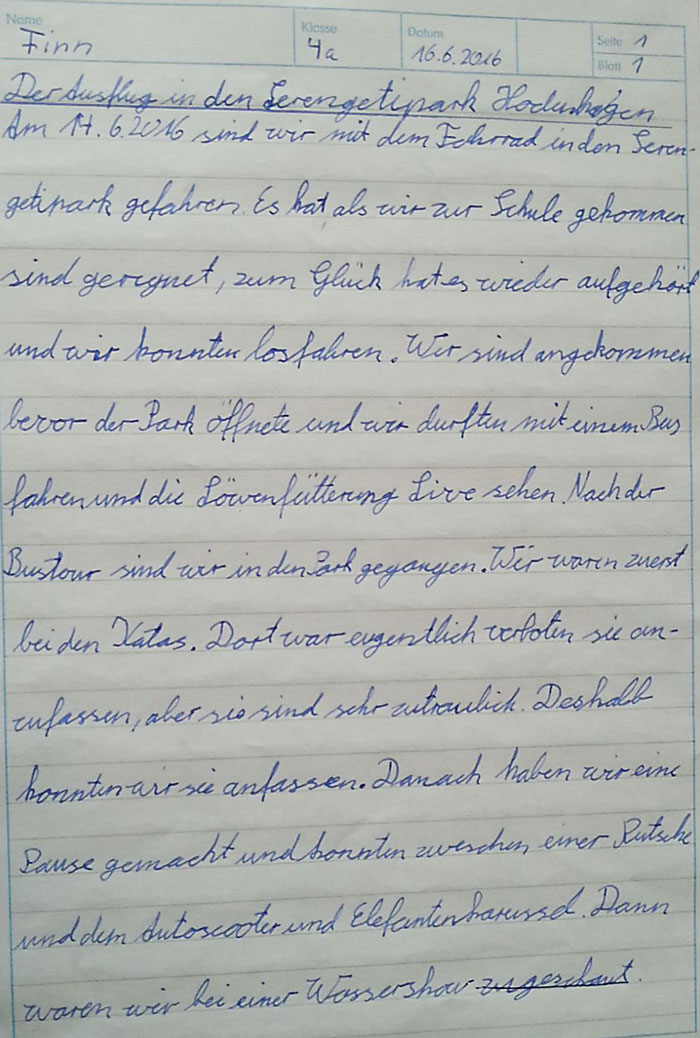 Name Klasse Datum Seite 1
Finn 4a 16.6.2016 Blatt 1
Der Ausflug in den Serengetipark Hodenhagen
Am 14.6.2016 sind wir mit dem Fahrrad in den Seren-
getipark gefahren. Es hat, als wir zur Schule gekommen
sind geregnet, zum Glück hat es wieder aufgehört
und wir konnten losfahren. Wir sind angekommen
bevor der Park öffnete und wir durften mit einem Bus
fahren und die Löwenfütterung Live sehen. Nach der
Bustour sind wir in den Park gegangen. Wir waren zuerst
bei den Katas. Dort war eigentlich verboten sie an-
zufassen, aber sie sind sehr zutraulich. Deshalb
konnten wir sie anfassen. Danach haben wir eine
Pause gemacht und konnten zwischen einer Rutsche
und dem Autoscooter und Elefantenkarussel. Dann
waren wir bei einer Wassershow zugeschaut.